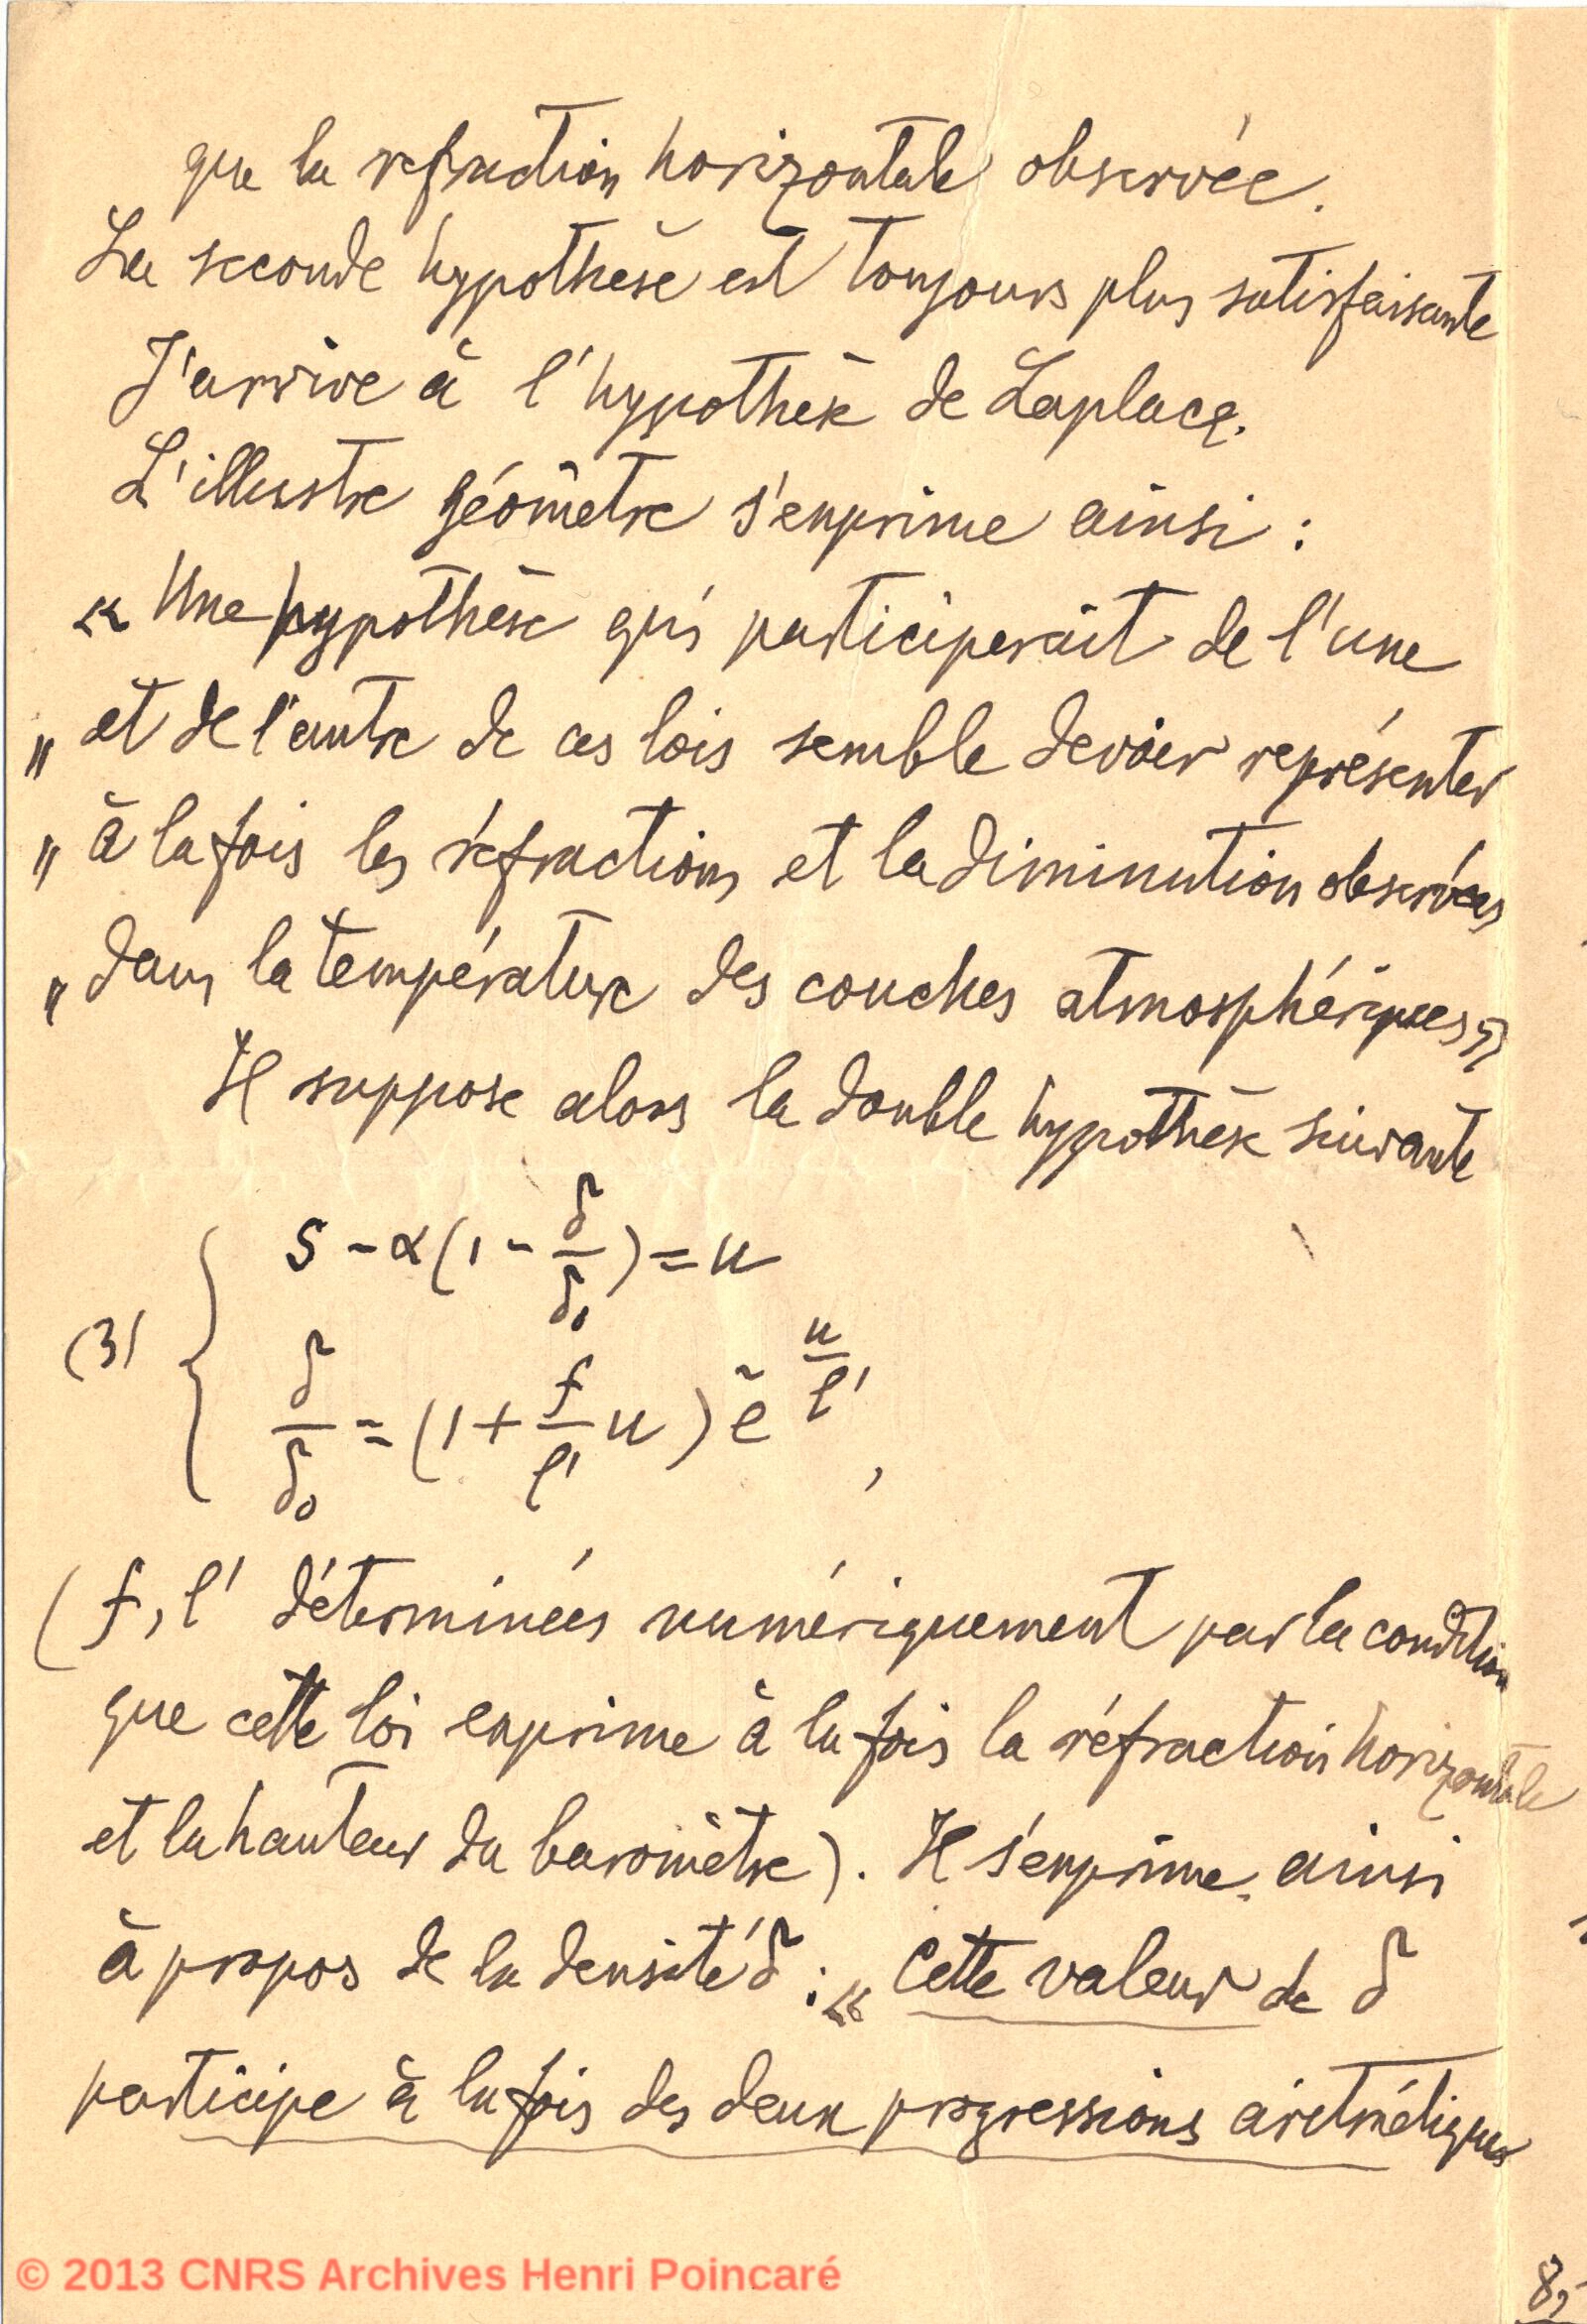 que la refraction horizontale observée.
La seconde hypothèse est toujours plus satisfaisante
J'arrive à l'hypothèse de Laplace.
L'illustre géomètre s'exprime ainsi :
« Une hypothèse qui participerait de l'une
" et de l'autre de ces lois semble devoir représenter
" à la fois les réfractions et la diminution observées
" dans la température des couches atmosphériques »
Il suppose alors la double hypothèse suivante
s - α(1 - δ/δ₀) = u
(3) {
δ/δ₀ = (1 + f/l' u) e^{-u/l'},
(f, l' déterminées numériquement par la condition
que cette loi exprime à la fois la réfraction horizontale
et la hauteur du baromètre). Il s'exprime ainsi
à propos de la densité δ : « Cette valeur de δ
participe à la fois des deux progressions aritmétiques
© 2013 CNRS Archives Henri Poincaré